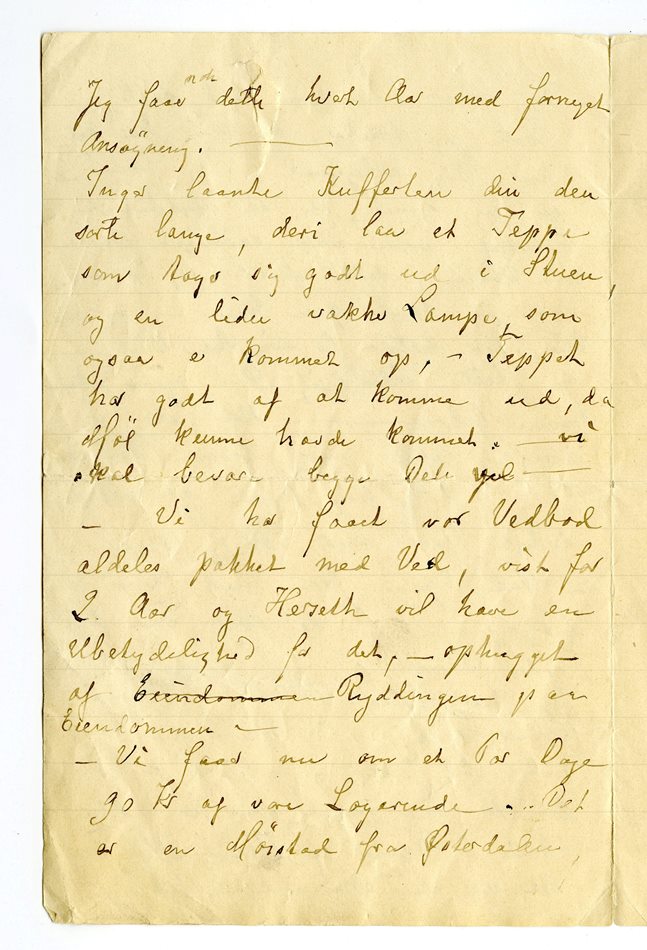 Jeg faar nok dette hvert Aar med fornyet
Ansøgning. —
Inga laante Kufferten din den
sorte lange, deri laa et Teppe
som tager sig godt ud i Stuen,
og en liden vakker Lampe, som
ogsaa er kommet op, – Teppet
har godt af at komme ud, da
Møl kunne havde kommet. – vi
skal bevare begge Dele vel —
– Vi har faaet vor Vedbod
aldeles pakket med Ved, vist for
2 Aar og Herseth vil have en
Ubetydelighed for det, – ophugget
af Eiendommen Ryddingen paa
Eiendommen –
– Vi faar nu om et Par Dage
90 Kr af vore Logerende ... Det
er en Mørstad fra Østerdalen,